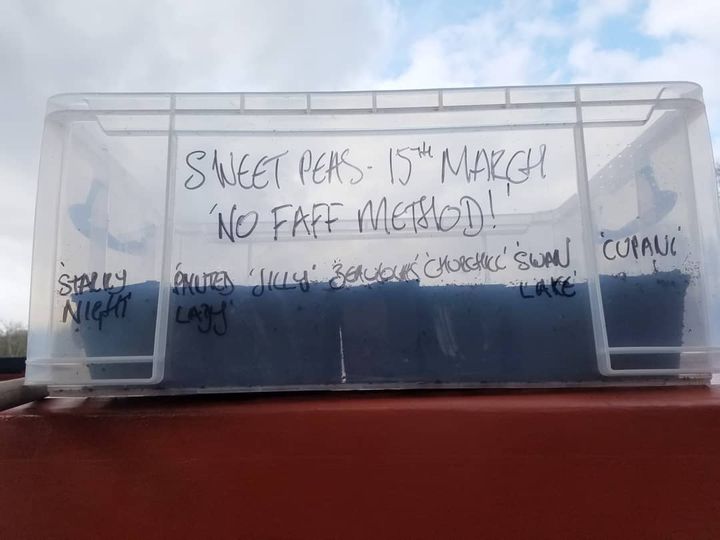 SWEET PEAS - 15TH MARCH
'NO FAFF METHOD!'
'STARRY 'PAINTED 'JILLY' 'CHURCHILL' 'SWAN 'CUPANI'
NIGHT' LADY' LAKE'